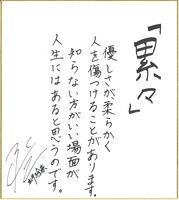 「累々」
優しさが柔らかく
人を傷つけることがあります。
知らない方がいい場面が
人生にはあると思うのです。